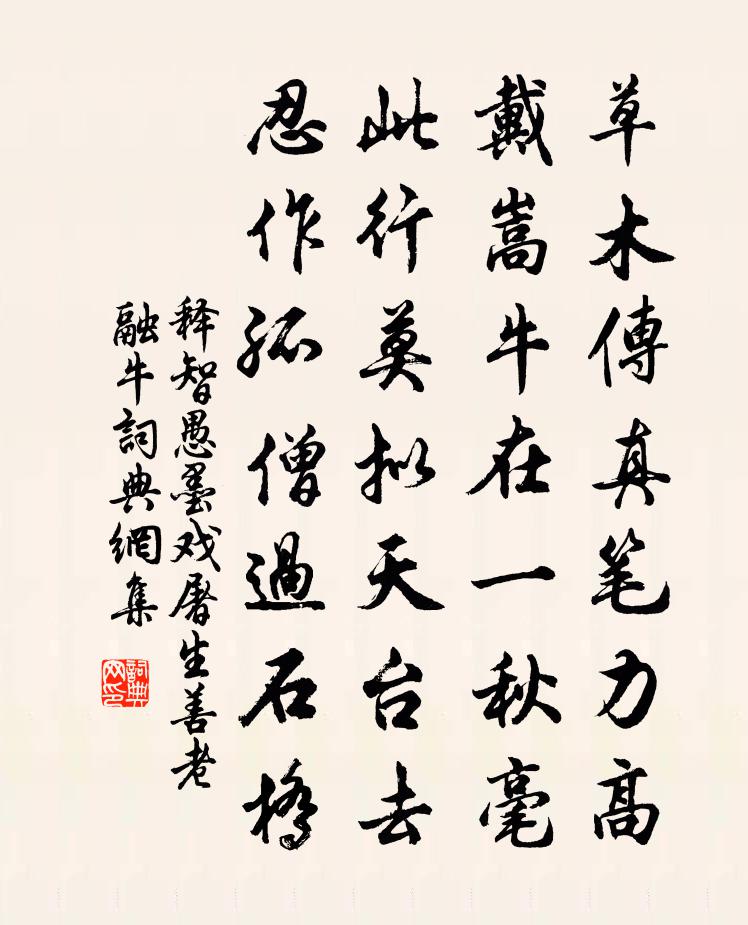 草木傳真笔力高
戴嵩牛在一秋毫
此行莫拟天台去
忍作孤僧過石橋
释智愚墨戏屠生善老
融牛詞典網集
詞典网印